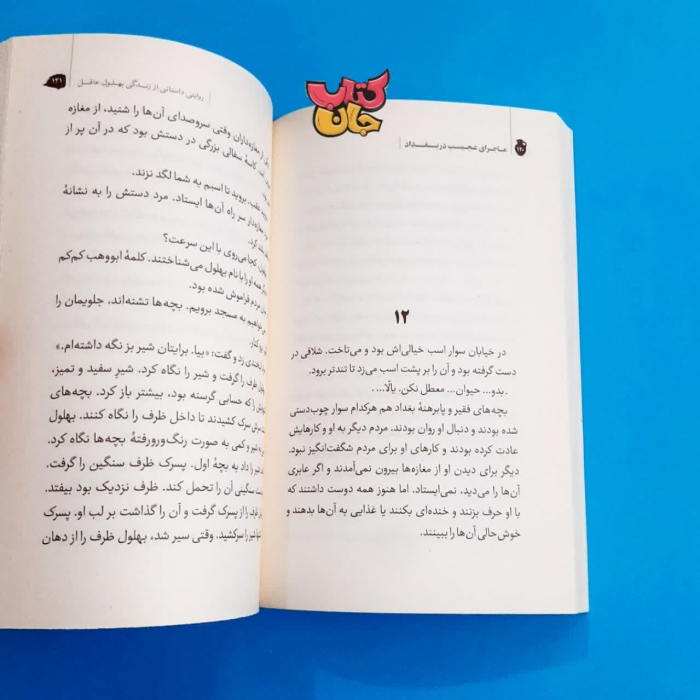 کتاب
جان
۱۲۰
ماجرای عجیب در بغداد
۱۲
در خیابان سوار اسب خیالی‌اش بود و می‌تاخت. شلاقی در
دست گرفته بود و آن را بر پشت اسب می‌زد تا تندتر برود.
ـ بدو... حیوان... معطل نکن. یالّا... .
بچه‌های فقیر و پابرهنهٔ بغداد هم هرکدام سوار چوب‌دستی
شده بودند و دنبال او روان بودند. مردم دیگر به او و کارهایش
عادت کرده بودند و کارهای او برای مردم شگفت‌انگیز نبود.
دیگر برای دیدن او از مغازه‌ها بیرون نمی‌آمدند و اگر عابری
آن‌ها را می‌دید، نمی‌ایستاد. اما هنوز همه دوست داشتند که
با او حرف بزنند و خنده‌ای بکنند یا غذایی به آن‌ها بدهند و
خوش‌حالی آن‌ها را ببینند.
روایتی داستانی از زندگی بهلول عاقل
۱۲۱
از مغازه‌داران وقتی سروصدای آن‌ها را شنید، از مغازه
کاسهٔ سفالی بزرگی در دستش بود که در آن پر از
بروید تا اسبم به شما لگد نزند.
سر راه آن‌ها ایستاد. مرد دستش را به نشانهٔ
کرد.
کجا می‌روی با این سرعت؟
همه او را با نام بهلول می‌شناختند. کلمهٔ ابووهب کم‌کم
مردم فراموش شده بود.
می‌خواهیم به مسجد برویم. بچه‌ها تشنه‌اند. جلویمان را
زد و گفت: «بیا. برایتان شیر بز نگه داشته‌ام.»
ظرف را گرفت و شیر را نگاه کرد. شیرِ سفید و تمیز،
را که حسابی گرسنه بود، بیشتر باز کرد. بچه‌های
سرک کشیدند تا داخل ظرف را نگاه کنند. بهلول
شیر و کمی به صورت رنگ‌ورورفتهٔ بچه‌ها نگاه کرد.
را داد به بچهٔ اول. پسرک ظرف سنگین را گرفت.
سنگینی آن را تحمل کند. ظرف نزدیک بود بیفتد.
را از پسرک گرفت و آن را گذاشت بر لب او. پسرک
شیر را سرکشید. وقتی سیر شد، بهلول ظرف را از دهان